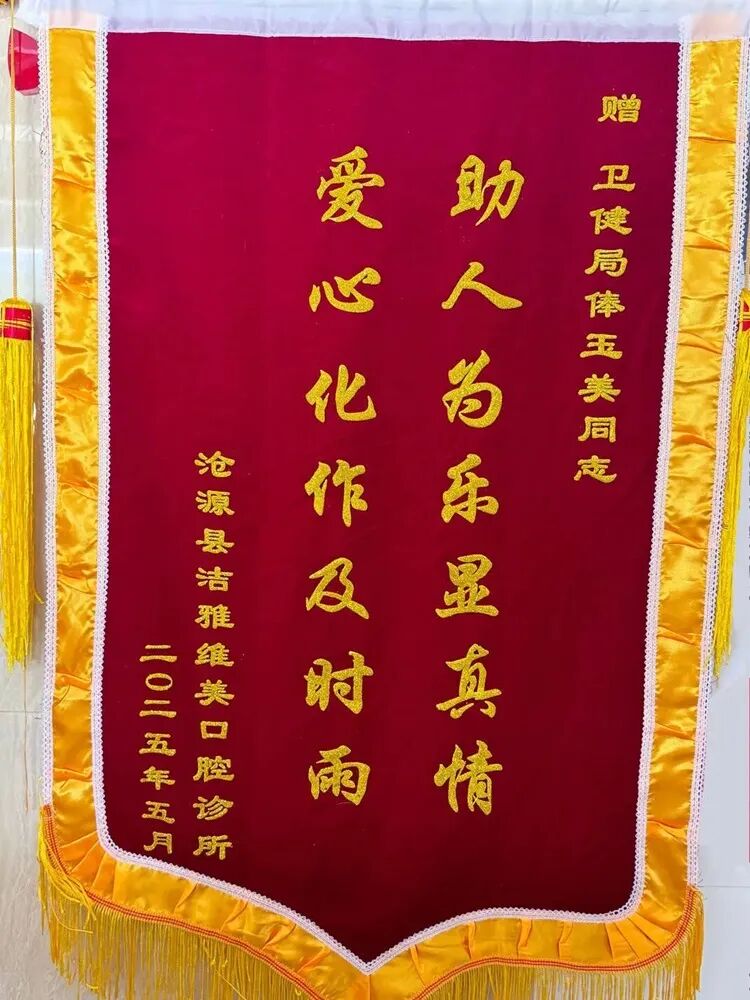 赠 卫健局俸玉美同志
助人为乐显真情
爱心化作及时雨
沧源县洁雅维美口腔诊所
二〇二五年五月